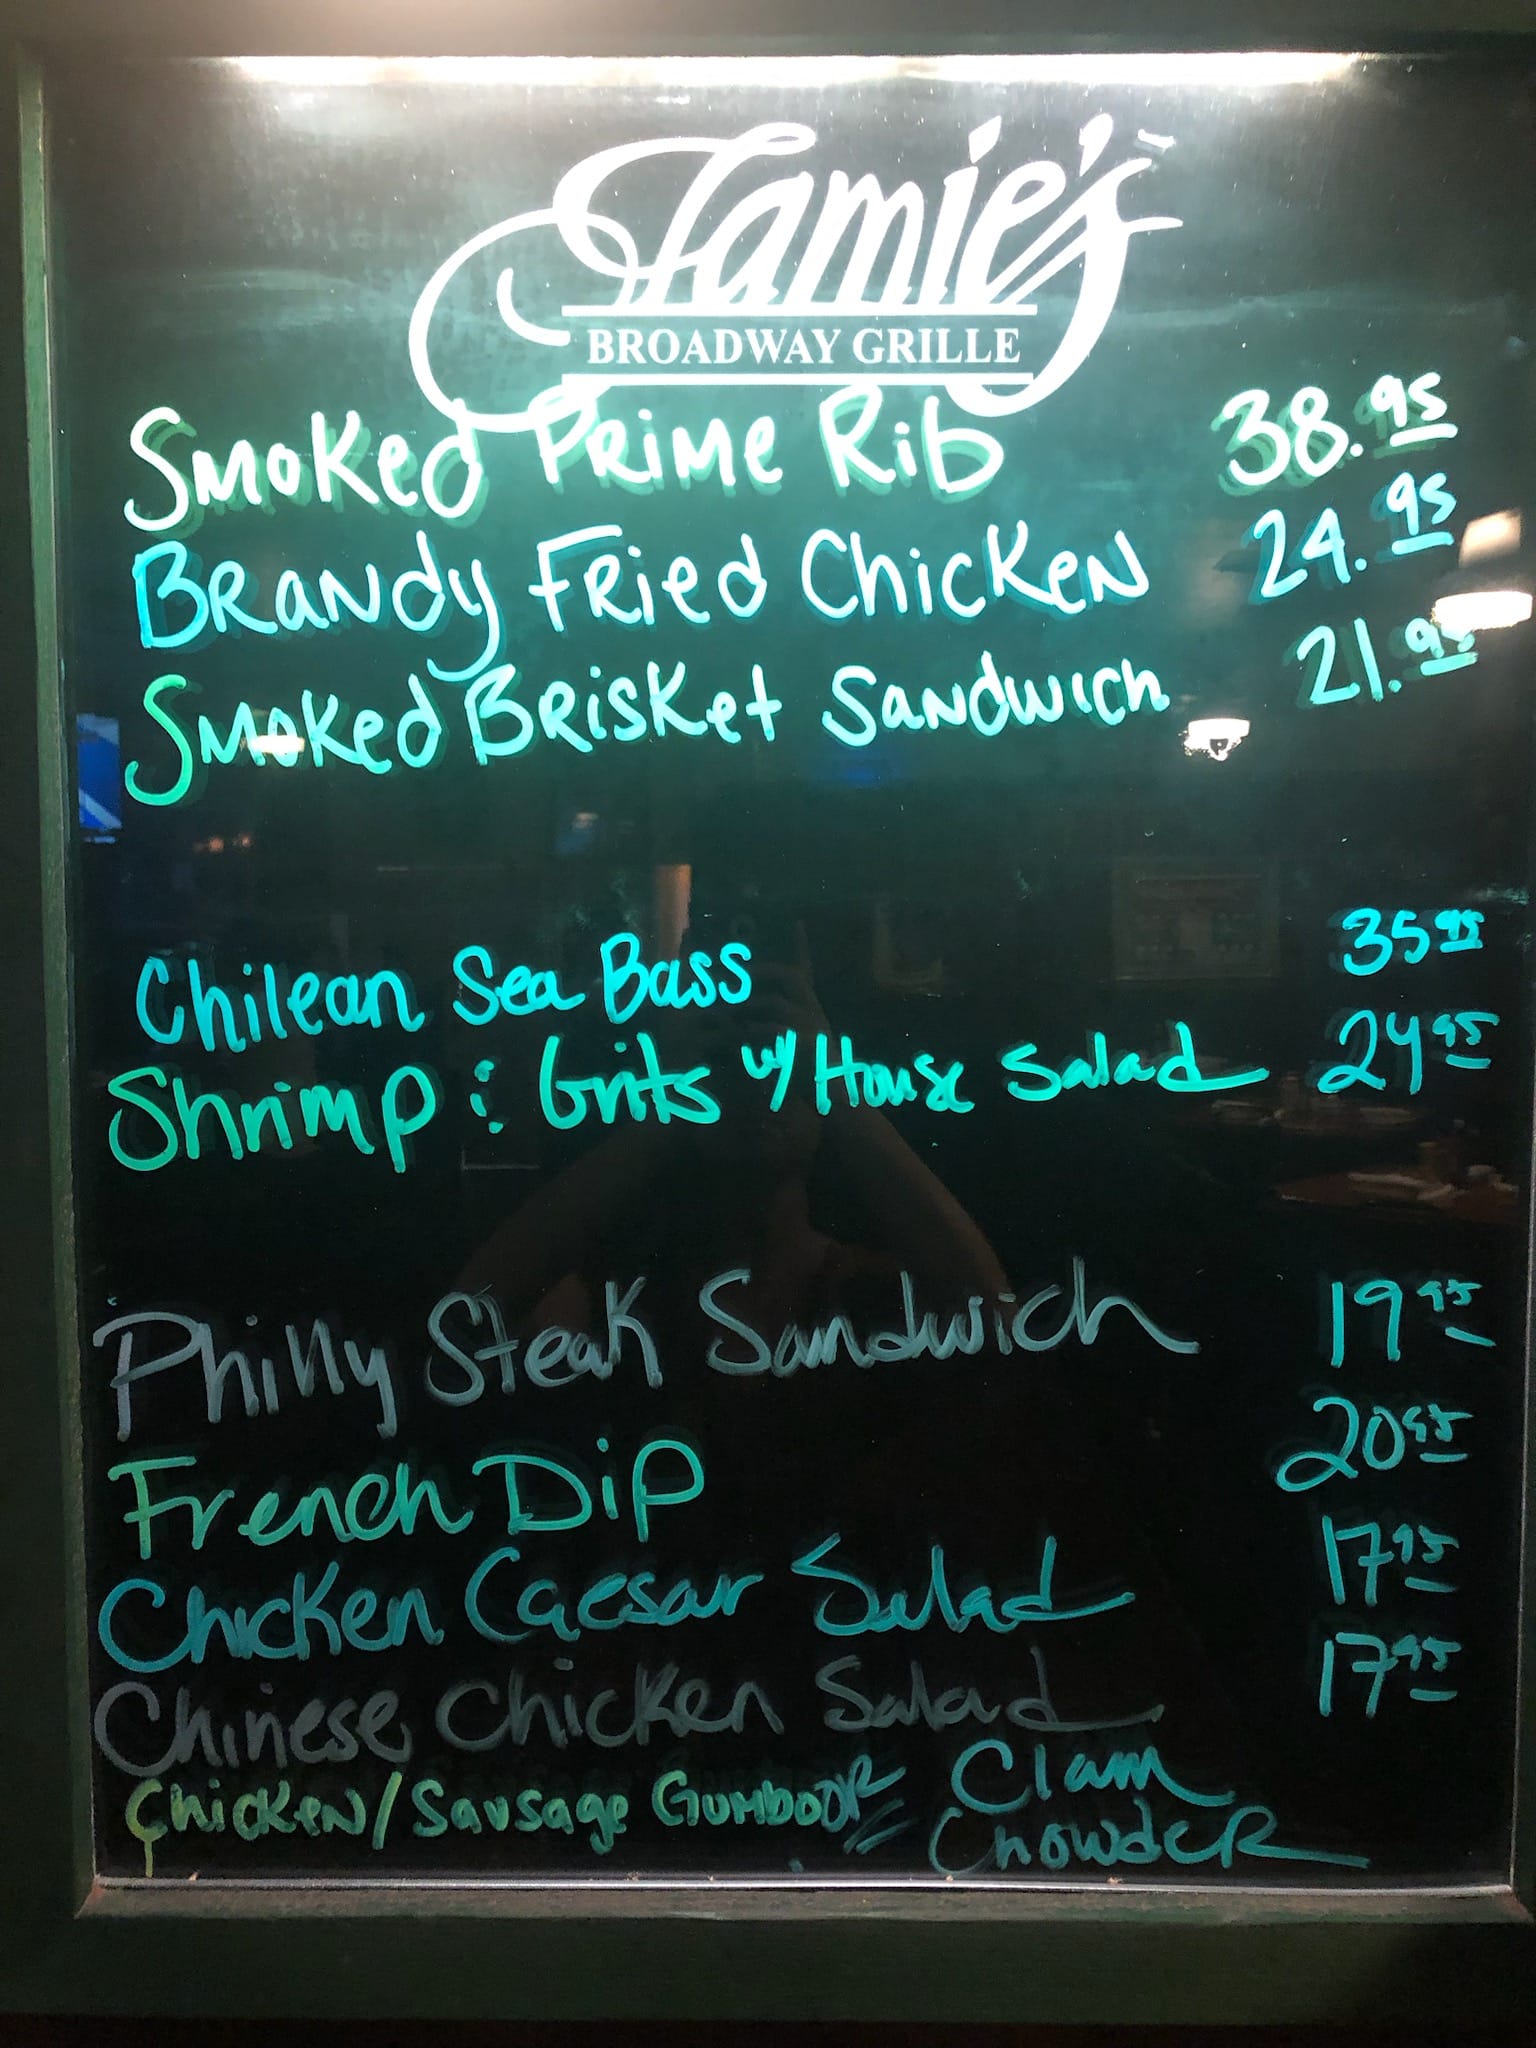 Jamie's
BROADWAY GRILLE
Smoked Prime Rib 38.95
Brandy Fried Chicken 24.95
Smoked Brisket Sandwich 21.95
Chilean Sea Bass 35 95
Shrimp & Grits w/ House Salad 24 95
Philly Steak Sandwich 19 95
French Dip 20 95
Chicken Caesar Salad 17 95
Chinese Chicken Salad 17 95
Chicken/Sausage Gumbo OR Clam
Chowder